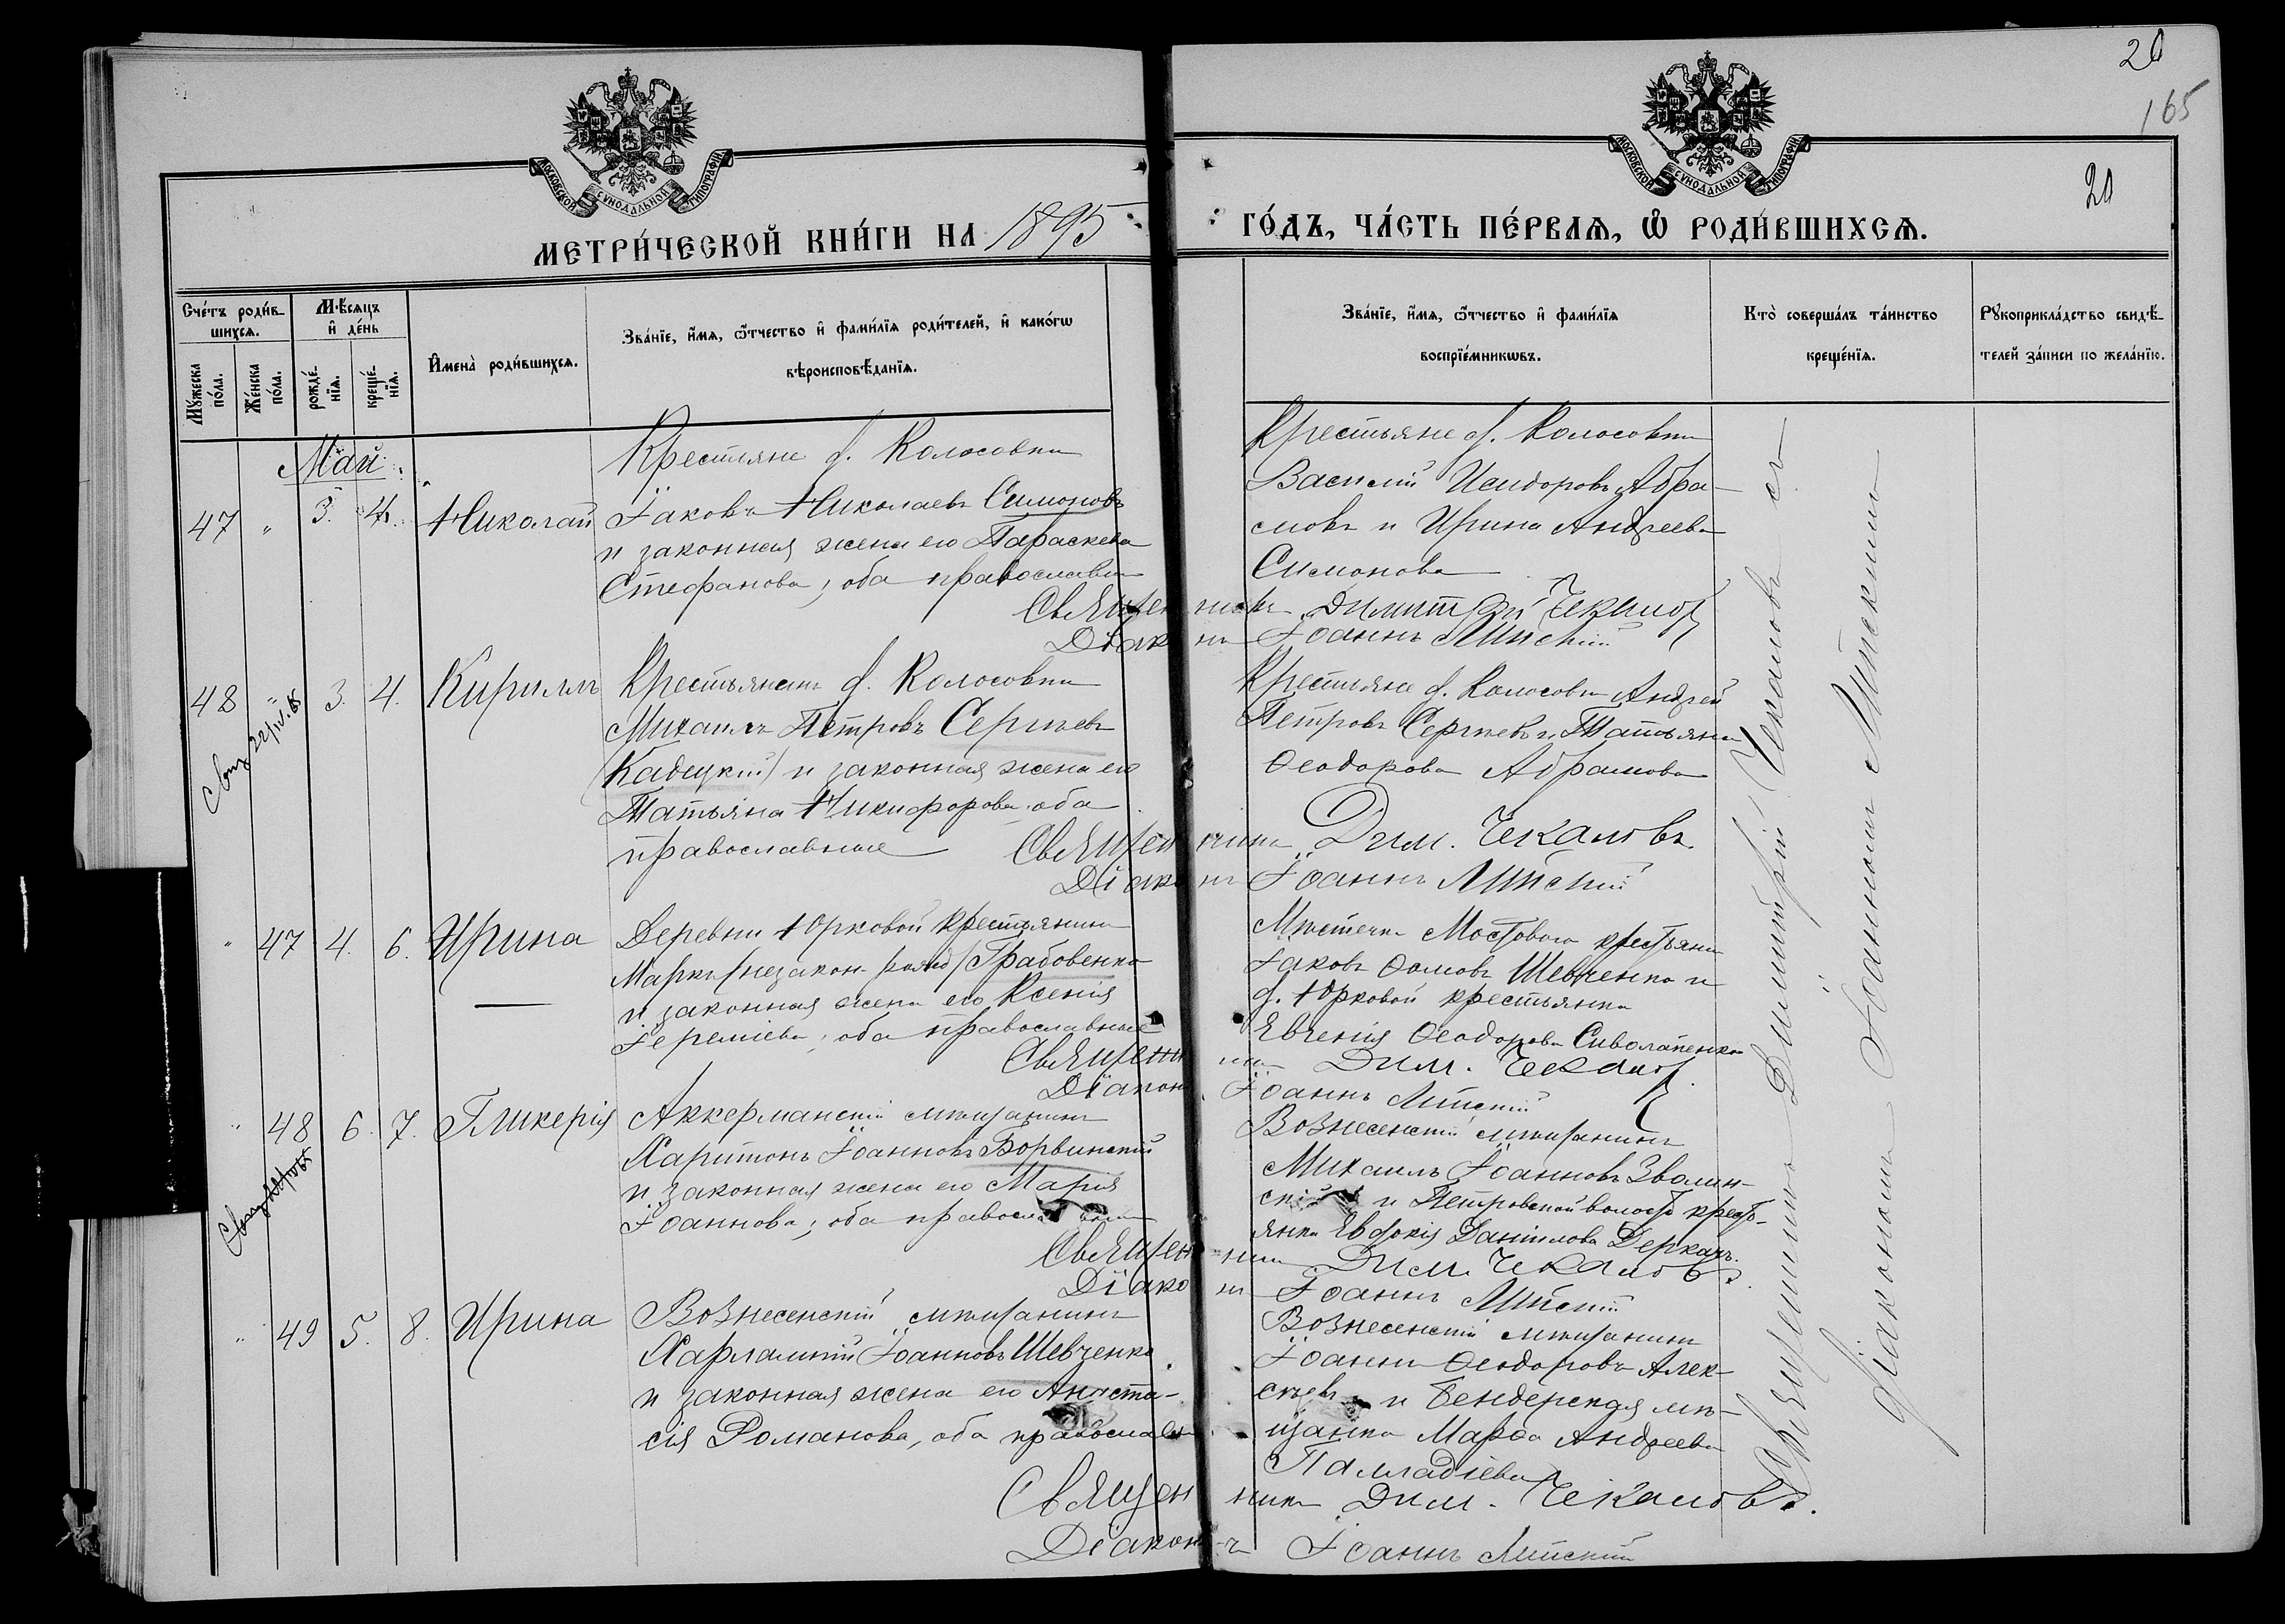 20
165
20
МОСКОВСКОЙ СУНОДАЛЬНОЙ ТИПОГРАФІИ.
МОСКОВСКОЙ СУНОДАЛЬНОЙ ТИПОГРАФІИ.
МЕТРИ́ЧЕСКОЙ КНИ́ГИ НА 1895
ГО́ДЪ, ЧА́СТЬ ПЕ́РВАѦ, Ѡ҆ РОДИ́ВШИХСѦ.
Сче́тъ роди́в-
шихсѧ.
Мꙋ́жеска по́ла.
Же́нска по́ла.
Мѣ́сѧцъ
и҆ де́нь
рожде́-
нїѧ.
креще́-
нїѧ.
И҆мена̀ роди́вшихсѧ.
Зва́нїе, и҆́мѧ, ѻ҆́тчество и҆ фами́лїѧ роди́телей, и҆ како́гѡ
вѣроисповѣ́данїѧ.
Зва́нїе, и҆́мѧ, ѻ҆́тчество и҆ фами́лїѧ
воспрїе́мникѡвъ.
Кто̀ соверша́лъ та́инство
креще́нїѧ.
Рꙋкоприкла́дство свидѣ́-
телей за́писи по жела́нїю.
Май
47 " 3. 4. Николай
Крестьяне д. Колосовки
Іаковъ Николаевъ Симоновъ
и законная жена его Параскева
Стефанова; оба православн
Крестьяне д. Колосовки
Василій Исидоровъ Абра-
мовъ и Ирина Андреева
Симонова
Священникъ Димитрій Чекановъ
Діаконъ Іоаннъ Минскій
48 " 3. 4. Кириллъ
Крестьянинъ д. Колосовки
Михаилъ Петровъ Сергѣевъ
(Кадецкій) и законная жена его
Татьяна Никифорова оба
православные
Крестьяне д. Колосовки Андрей
Петровъ Сергѣевъ и Татьяна
Ѳеодорова Абрамова
Священникъ Дим. Чекановъ
Діаконъ Іоаннъ Минскій
" 47 4. 6. Ирина
Деревни Юрковой крестьянинъ
Маркъ (незакон. рожд) Грабовенко
и законная жена его Ксенія
Іереміева; оба православные
Мѣстечка Мостового крестьянин
Іаковъ Ѳомовъ Шевченко и
д. Юрковой крестьянка
Евгенія Ѳеодорова Сиволапенко
Священникъ Дим. Чекановъ
Діаконъ Іоаннъ Минскій
" 48 6. 7. Гликерія
Аккерманскій мѣщанинъ
Харитонъ Іоанновъ Борвинскій
и законная жена его Марія
Іоаннова; оба православн
Вознесенскій мѣщанинъ
Михаилъ Іоанновъ Зволин-
скій и Петровской волости кресть-
янка Евдокія Даніилова Деркачъ.
Священникъ Дим. Чекановъ
Діаконъ Іоаннъ Минскій
" 49 5. 8. Ирина
Вознесенскій мѣщанинъ
Харлампій Іоанновъ Шевченко
и законная жена его Анаста-
сія Романова, оба православн
Вознесенскій мѣщанинъ
Іоаннъ Ѳеодоровъ Алек-
сѣевъ и Бендерская мѣ-
щанка Марѳа Андреева
Палладіева
Священникъ Дим. Чекановъ.
Діаконъ Іоаннъ Минскій
Священникъ Димитрій Чекановъ съ
діакономъ Іоанномъ Минскимъ